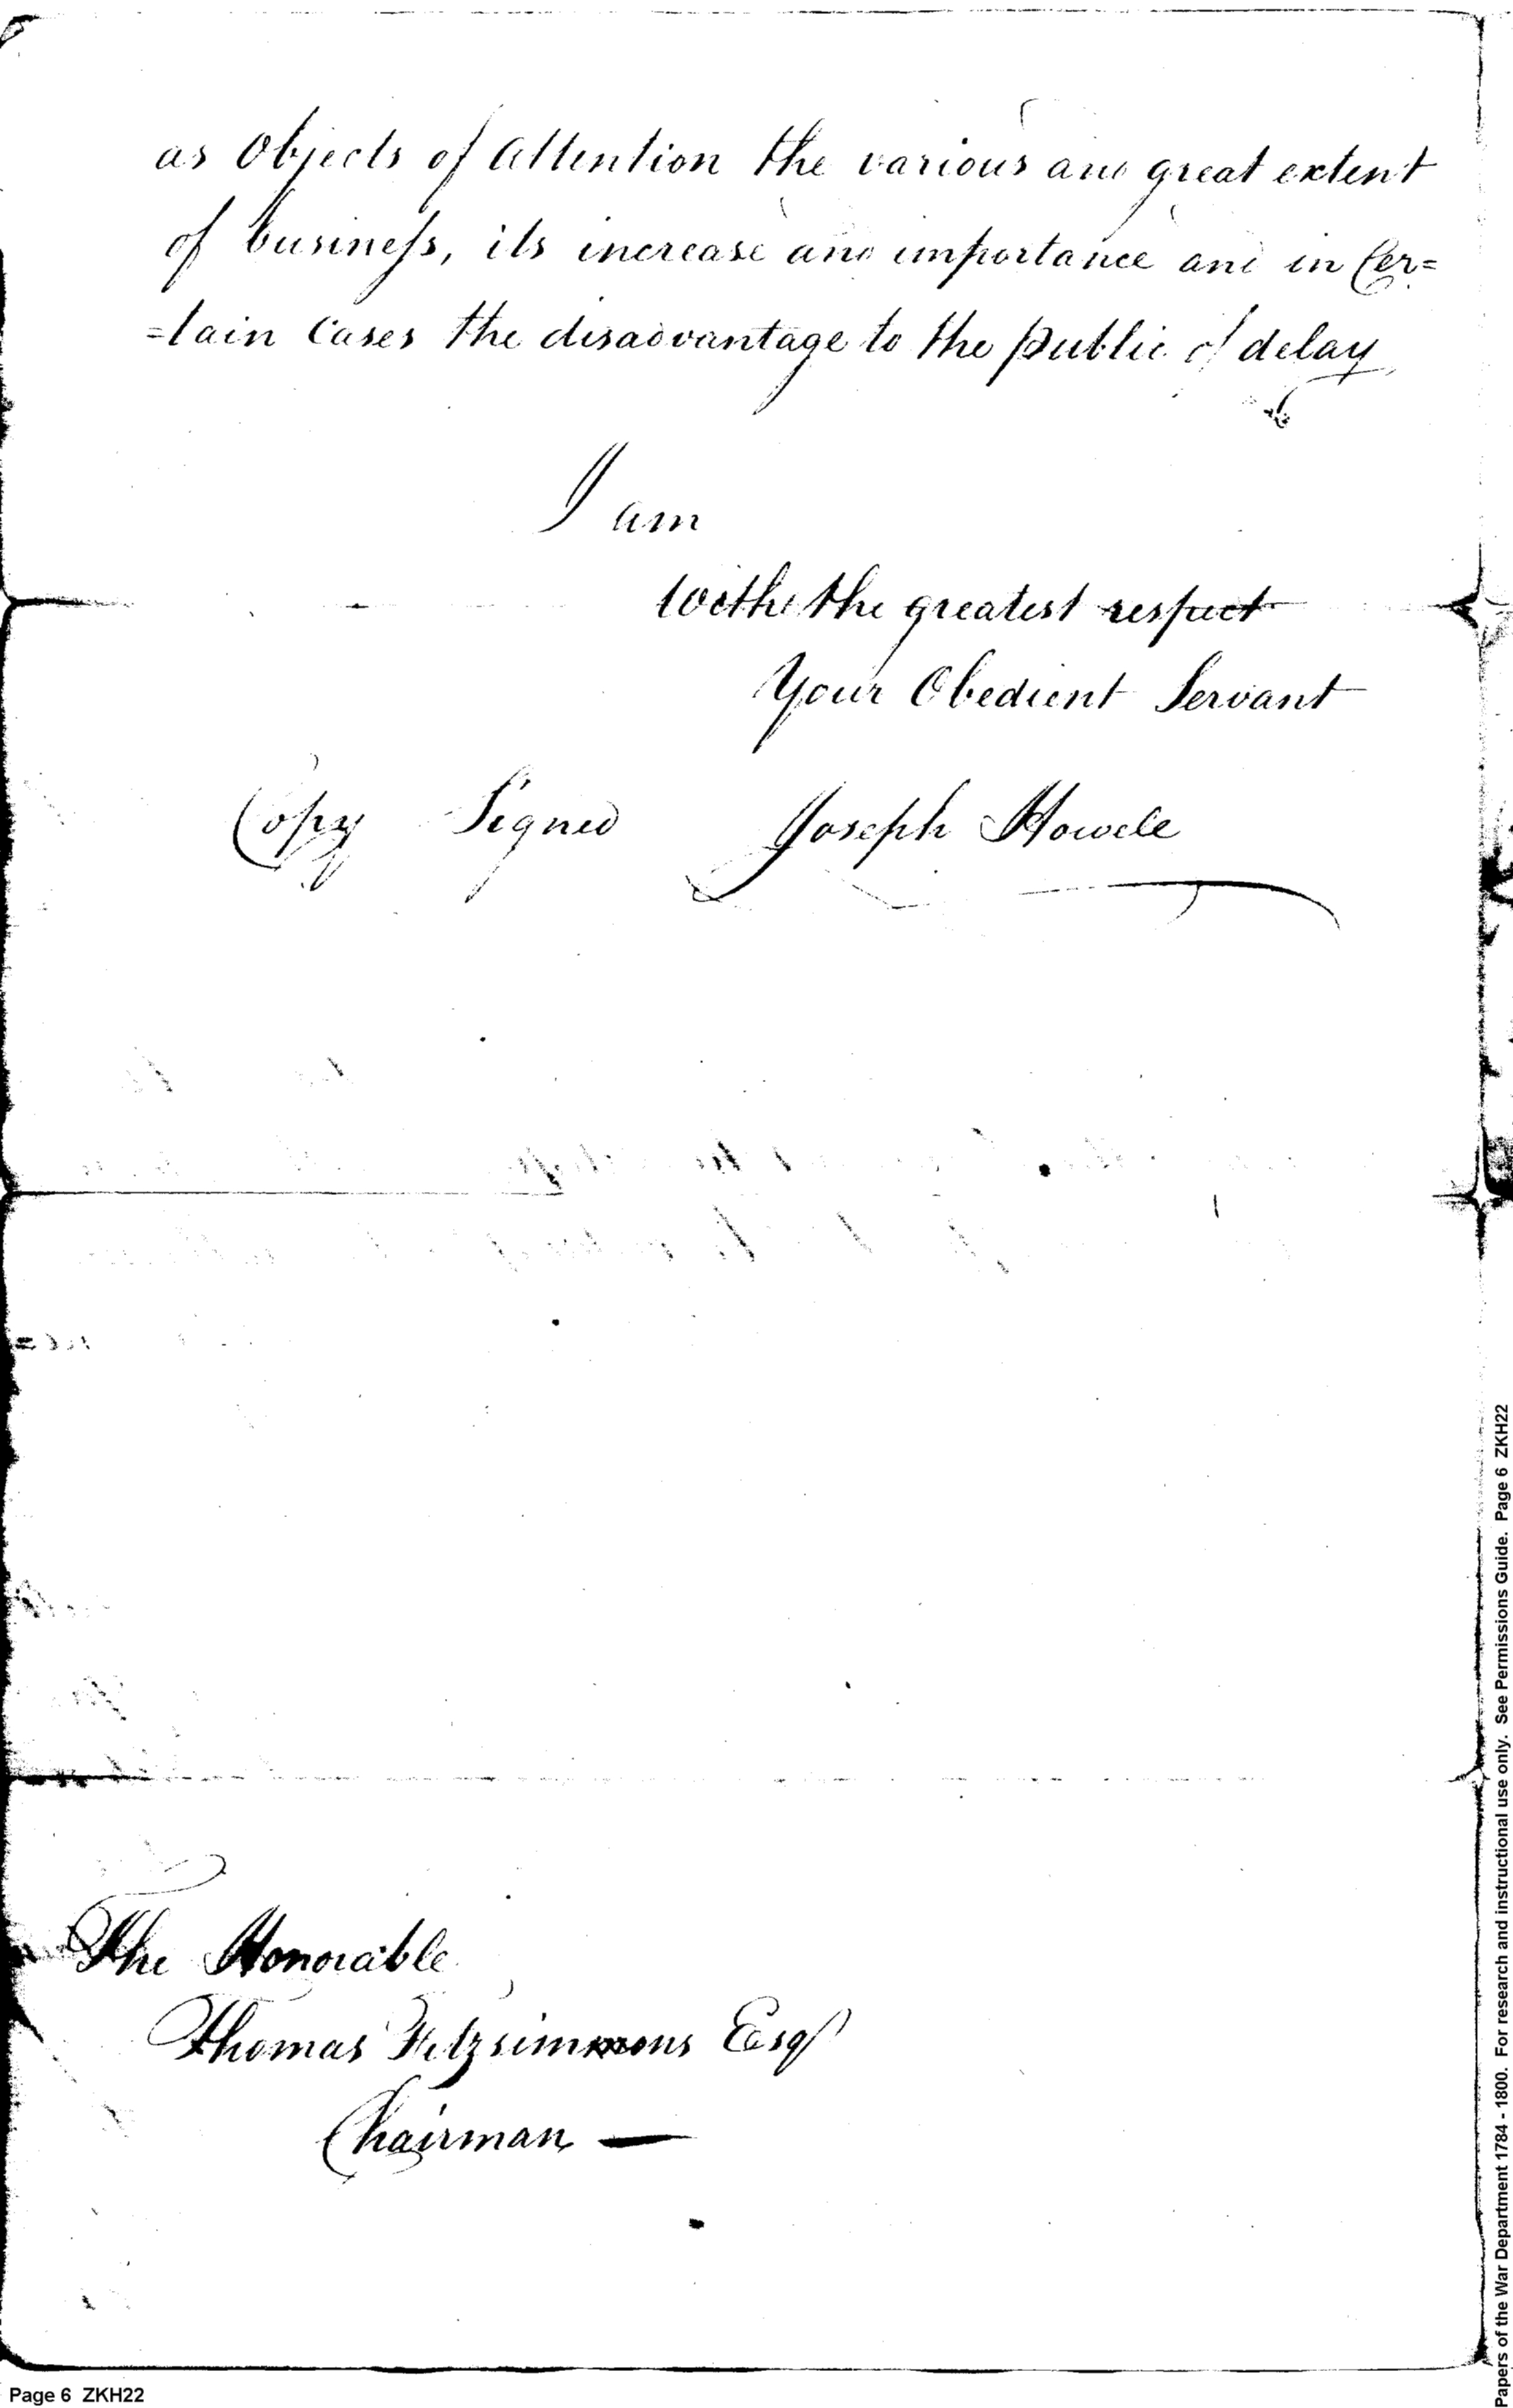 as Objects of Attention the various and great extent
of business, its increase and importance and in Cer=
=tain Cases the disadvantage to the public of delay
I am
with the greatest respect
Your Obedient Servant
Copy Signed Joseph Howell
The Honorable
Thomas Fitzsimmons Esqr
Chairman —
Page 6 ZKH22
Papers of the War Department 1784 - 1800. For research and instructional use only. See Permissions Guide. Page 6 ZKH22